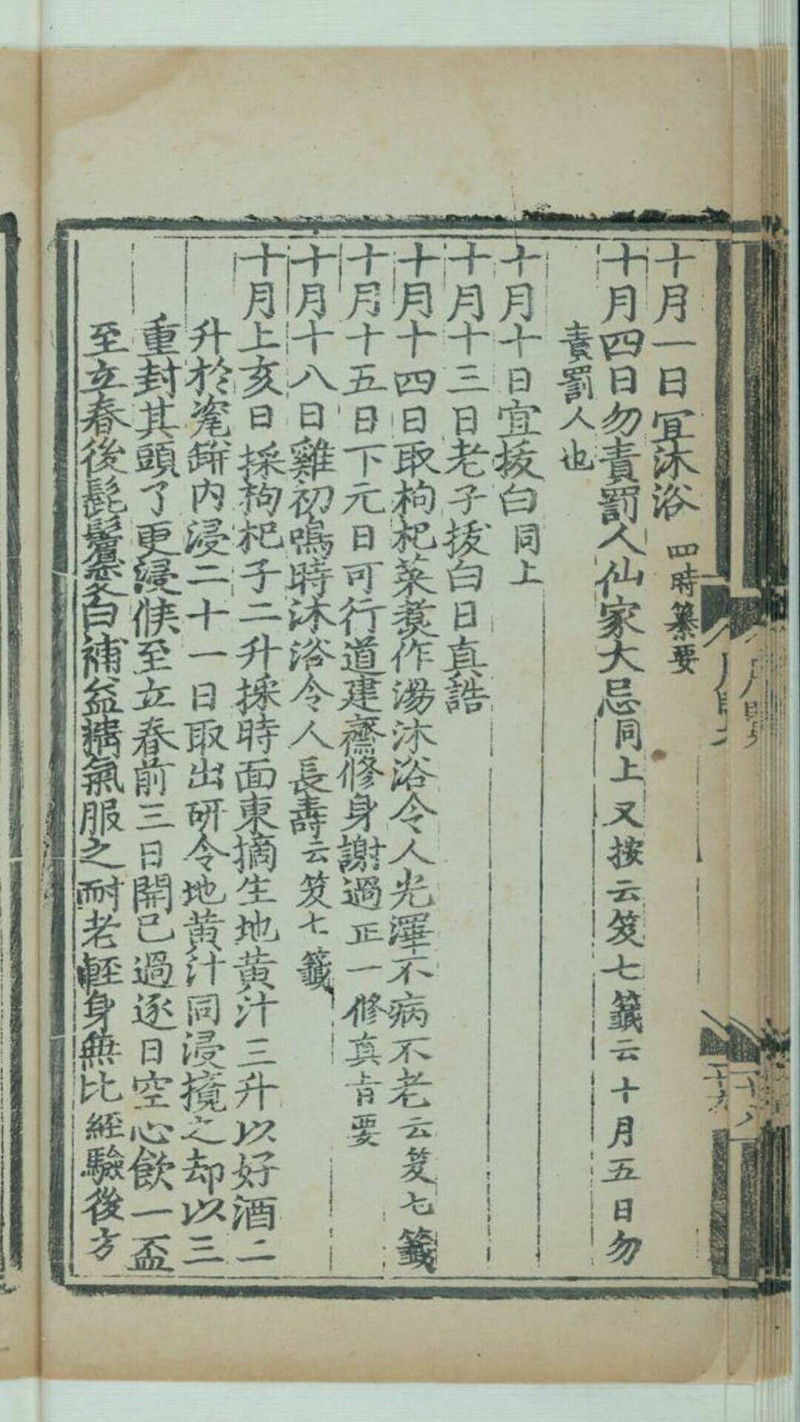 十月一日宜沐浴四時纂要
十月四日勿責罰人仙家大忌同上又按云笈七籤云十月五日勿
責罰人也
十月十日宜拔白同上
十月十三日老子拔白日真誥
十月十四日取枸杞菜煑作湯沐浴令人光澤不病不老云笈七籤
十月十五日下元日可行道建齋修身謝過正一修真旨要
十月十八日雞初鳴時沐浴令人長壽云笈七籤
十月上亥日採枸杞子二升採時面東摘生地黄汁三升以好酒二
升於瓷缾内浸二十一日取出研令地黄汁同浸攪之却以三
重封其頭了更浸候至立春前三日開已過逐日空心飲一盃
至立春後髭鬢變白補益精氣服之耐老輕身無比經驗後方